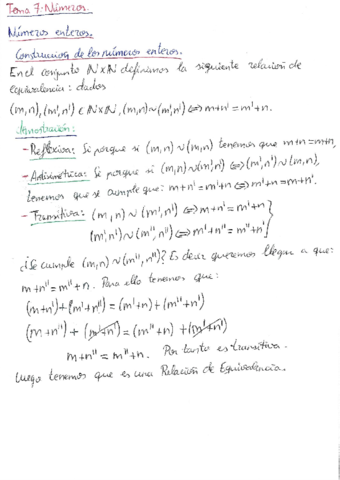 Tema 7: Números.
Números enteros.
Construcción de los números enteros.
En el conjunto ℕxℕ definimos la siguiente relación de
equivalencia: dados
(m,n), (m',n') ∈ ℕxℕ, (m,n)~(m',n') ⇔ m+n' = m'+n.
Demostración:
- Reflexiva: Si porque si (m,n)~(m,n) tenemos que m+n=m+n.
- Antisimétrica: Si porque si (m,n)~(m',n') ⇔ (m',n')~(m,n),
tenemos que se cumple que: m+n'=m'+n ⇔ m'+n=m+n'.
- Transitiva: (m,n)~(m',n') ⇔ m+n'=m'+n
(m',n')~(m'',n'') ⇔ m'+n''=m''+n' }
¿Se cumple (m,n)~(m'',n'')? Es decir queremos llegar a que:
m+n''=m''+n. Para ello tenemos que:
(m+n')+(m'+n'')=(m'+n)+(m''+n')
(m+n'')+(m'+n')=(m''+n)+(m'+n')
m+n''=m''+n. Por tanto es transitiva.
Luego tenemos que es una Relación de Equivalencia.